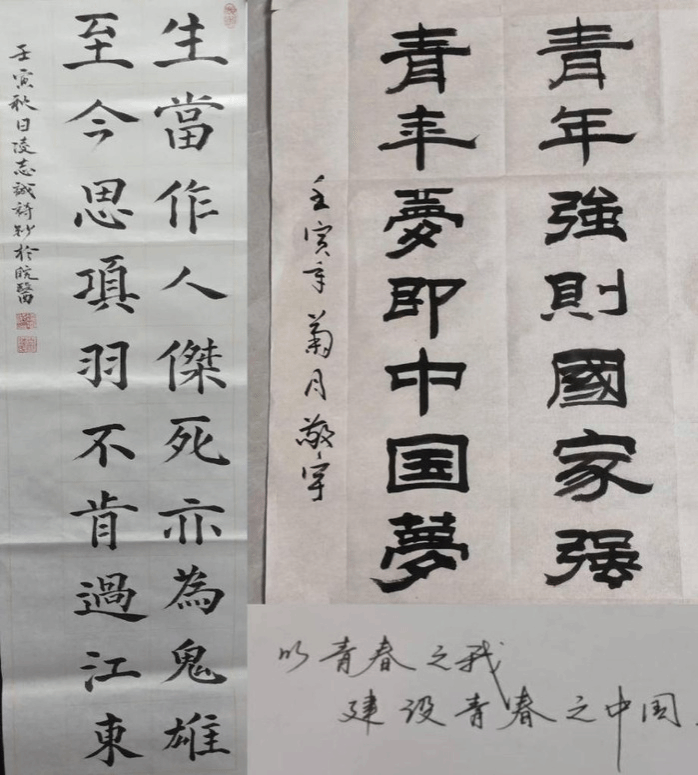 生當作人傑死亦為鬼雄
至今思項羽不肯過江東
壬寅秋日凌志誠詩抄於皖醫
青年強則國家强
青年夢即中国夢
壬寅年菊月敬宇
以青春之我
建设青春之中国.